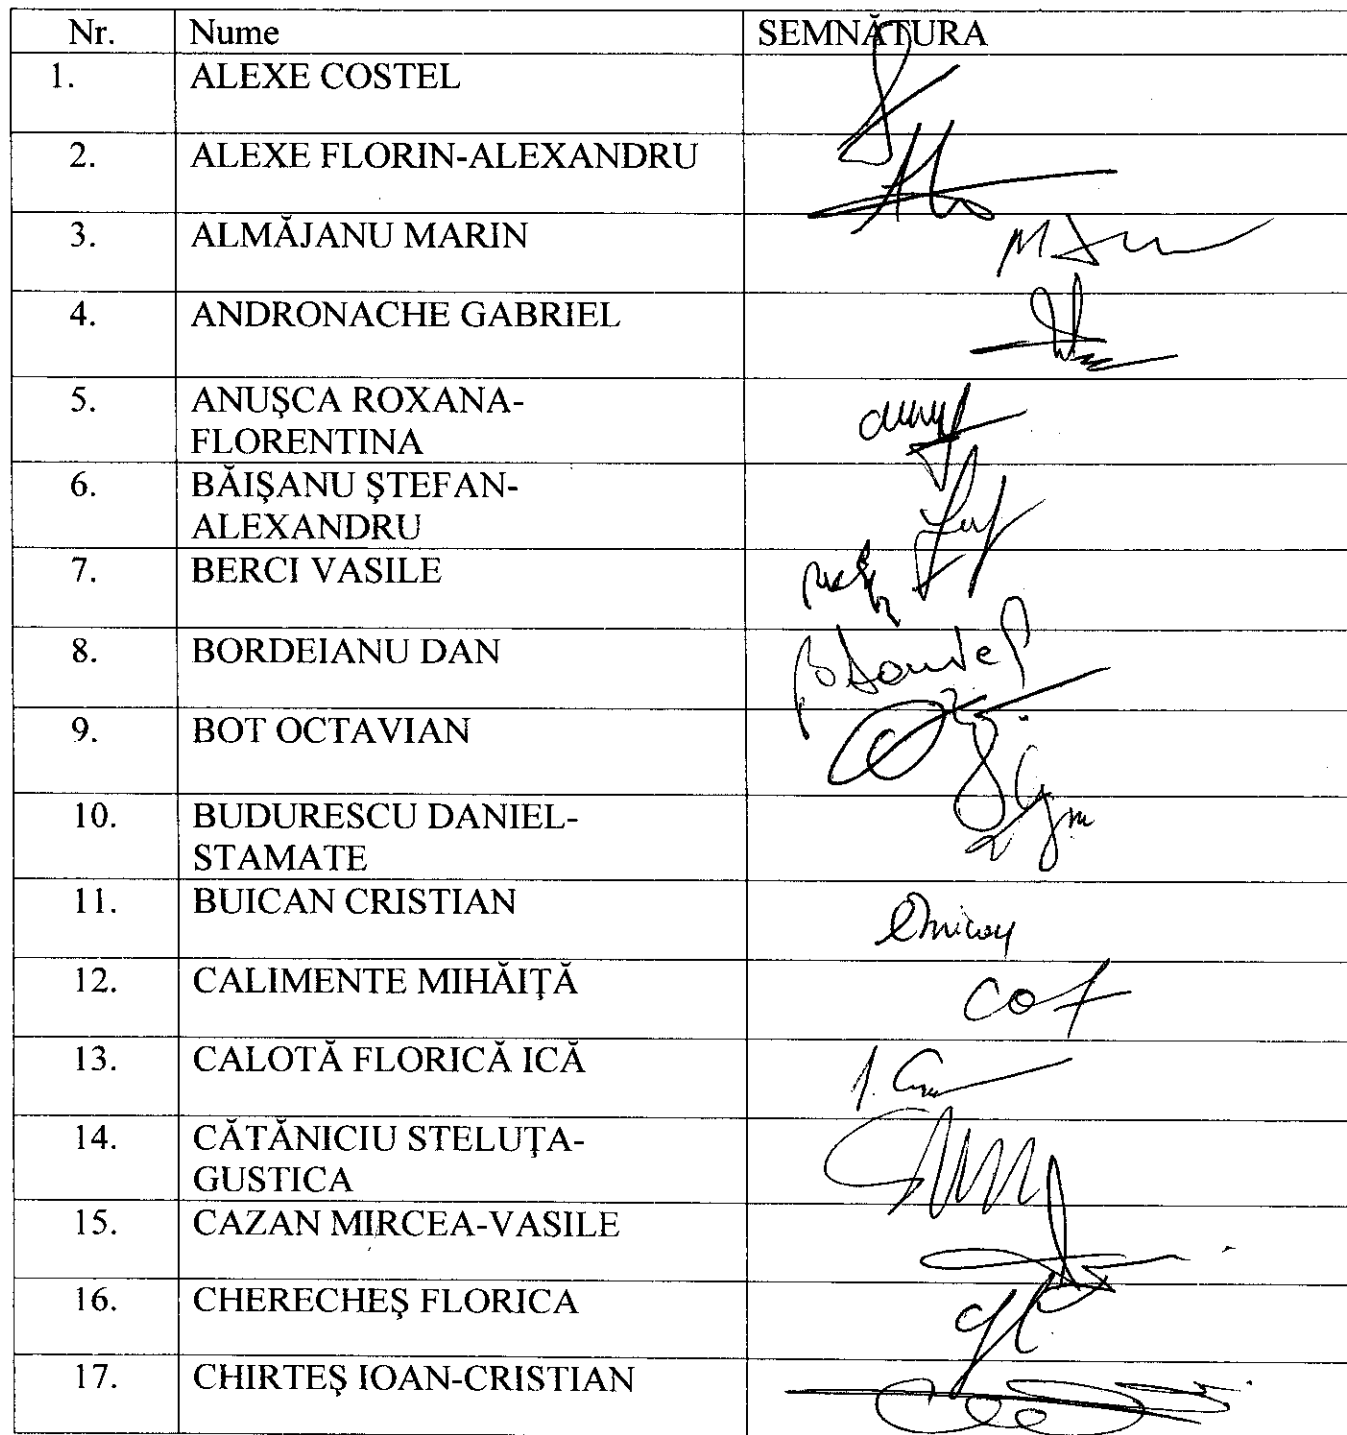 Nr. Nume SEMNĂTURA
1. ALEXE COSTEL
2. ALEXE FLORIN-ALEXANDRU
3. ALMĂJANU MARIN
4. ANDRONACHE GABRIEL
5. ANUŞCA ROXANA-
FLORENTINA
6. BĂIŞANU ŞTEFAN-
ALEXANDRU
7. BERCI VASILE
8. BORDEIANU DAN
9. BOT OCTAVIAN
10. BUDURESCU DANIEL-
STAMATE
11. BUICAN CRISTIAN
12. CALIMENTE MIHĂIŢĂ
13. CALOTĂ FLORICĂ ICĂ
14. CĂTĂNICIU STELUŢA-
GUSTICA
15. CAZAN MIRCEA-VASILE
16. CHERECHEŞ FLORICA
17. CHIRTEŞ IOAN-CRISTIAN